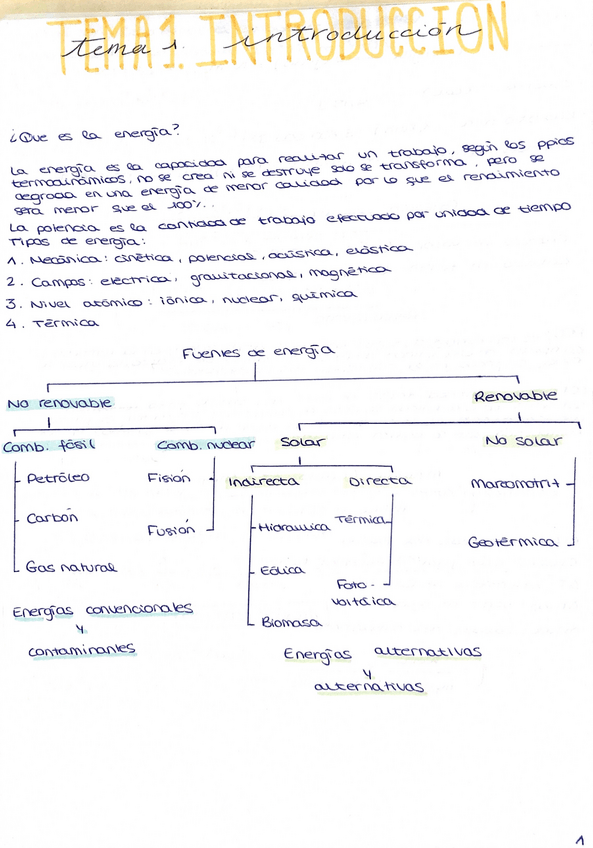 TEMA 1. INTRODUCCION
tema 1. introducción
¿Que es la energía?
La energía es la capacidad para realizar un trabajo, según los ppios
termodinámicos, no se crea ni se destruye solo se transforma, pero se
degrada en una energía de menor calidad por lo que el rendimiento
será menor que el 100%.
La potencia es la cantidad de trabajo efectuado por unidad de tiempo
Tipos de energía:
1. Mecánica: cinética, potencial, acústica, elástica
2. Campos: eléctrica, gravitacional, magnética
3. Nivel atómico: iónica, nuclear, química
4. Térmica
Fuentes de energía
No renovable
Renovable
Comb. fósil
Comb. nuclear
Solar
No solar
Petróleo
Fisión
Indirecta
Directa
Mareomotriz
Carbón
Fusión
Hidraulica
Térmica
Geotérmica
Gas natural
Eólica
Foto-
voltáica
Biomasa
Energías convencionales
y
contaminantes
Energías alternativas
y
alternativas
1